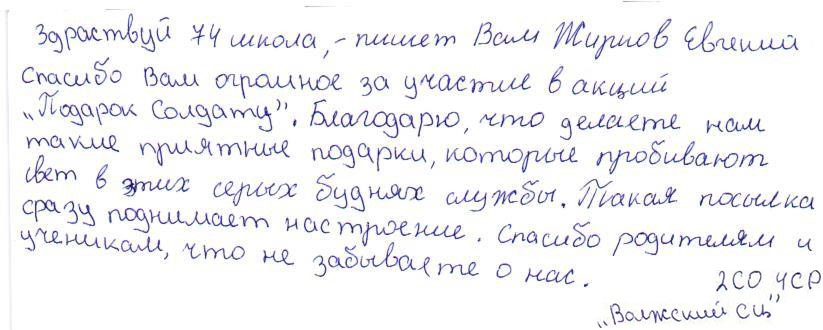 Здраствуй 74 школа, - пишет Вам Жирнов Евгений
Спасибо Вам огромное за участие в акций
„Подарок Солдату". Благодарю, что делаете нам
такие приятные подарки, которые пробивают
свет в этих серых буднях службы. Такая посылка
сразу поднимает настроение. Спасибо родителям и
ученикам, что не забываете о нас.
2СО ЧСР
„Волжский СЦ"